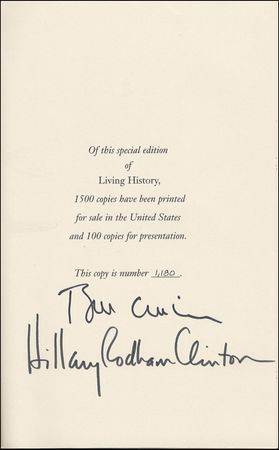 Of this special edition
of
Living History,
1500 copies have been printed
for sale in the United States
and 100 copies for presentation.
This copy is number 1,180.
Bill Clinton
Hillary Rodham Clinton